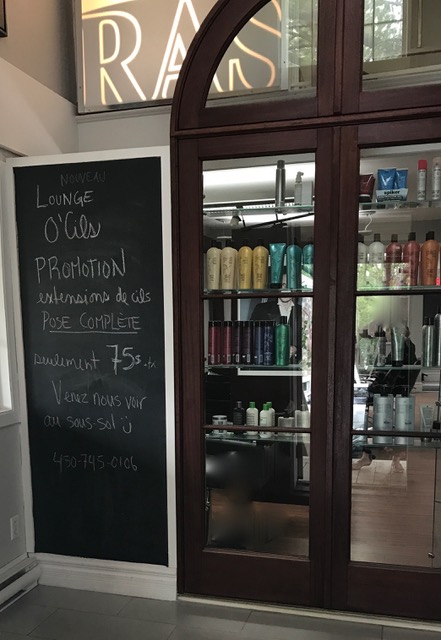 RAS
NOUVEAU
LOUNGE
O'Cils
PROMOTION
extensions de cils
POSE COMPLÈTE
seulement 75$ +tx
Venez nous voir
au sous-sol :)
450-745-0106